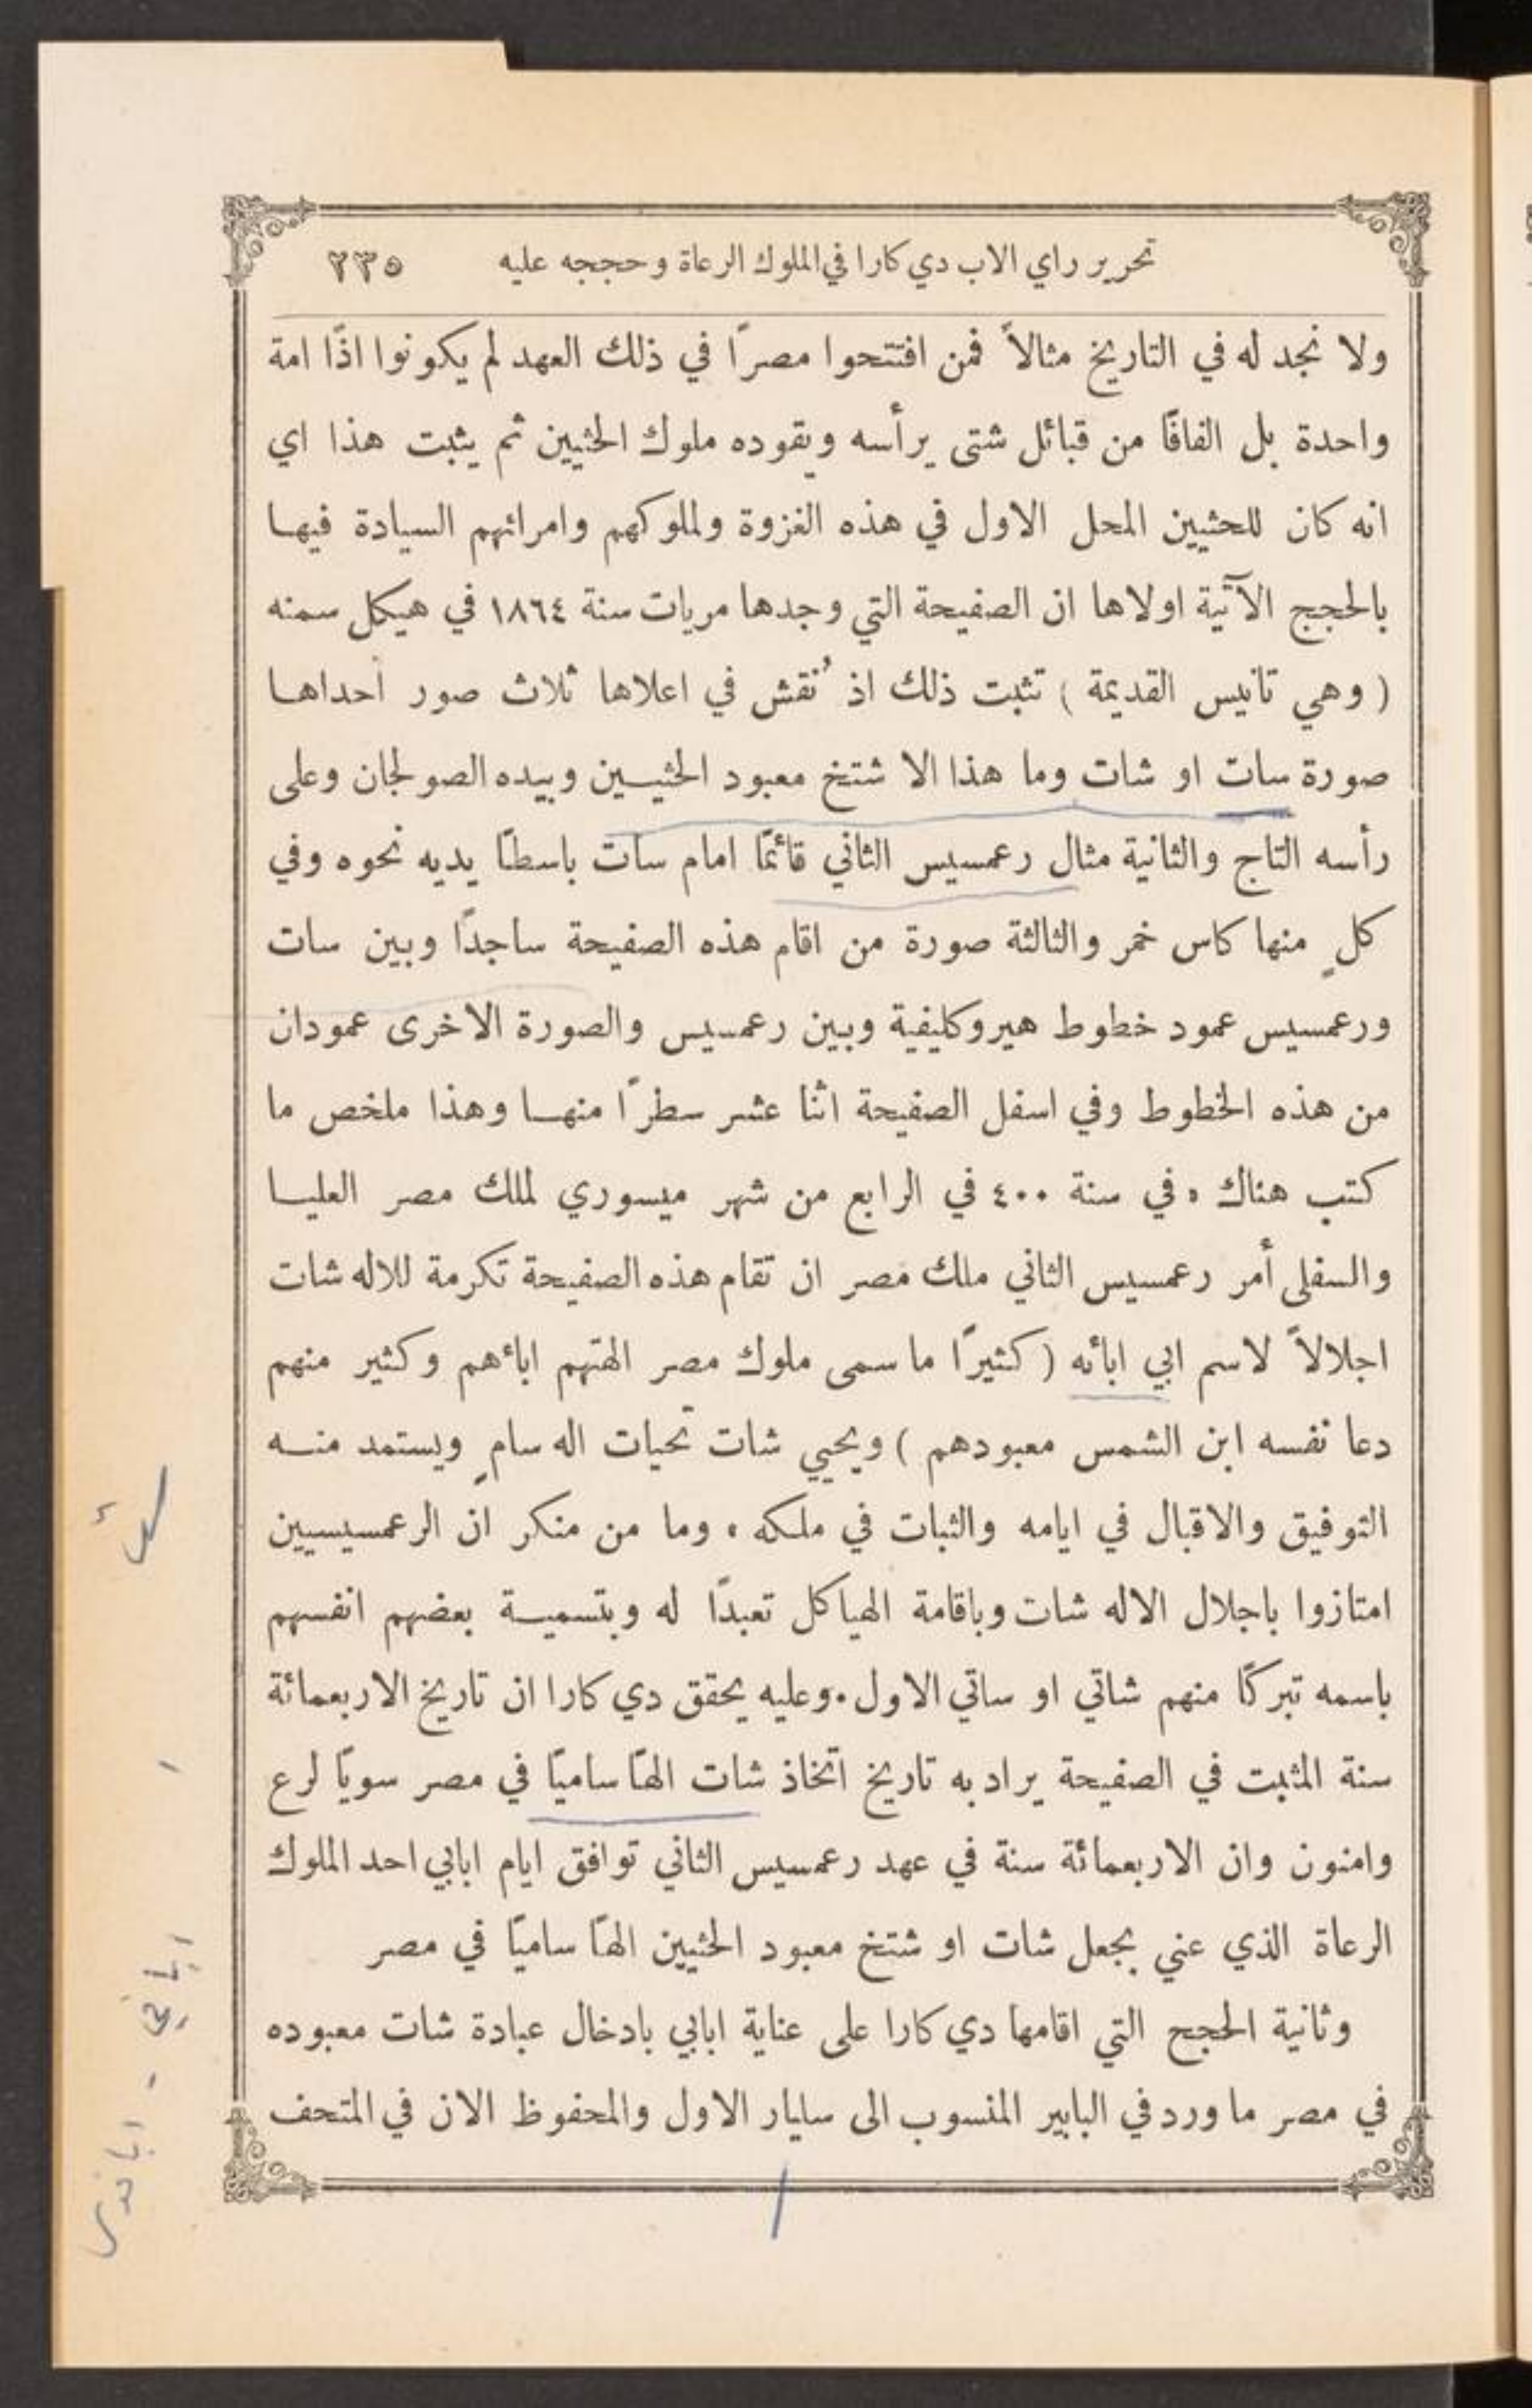 تحرير راي الاب دي كارا في الملوك الرعاة وحججه عليه ٢٣٥
ولا نجد له في التاريخ مثالاً فمن افتتحوا مصرًا في ذلك العهد لم يكونوا اذًا امة
واحدة بل الفافًا من قبائل شتى يرأسه ويقوده ملوك الحثيين ثم يثبت هذا اي
انه كان للحثيين المحل الاول في هذه الغزوة ولملوكهم وامرائهم السيادة فيها
بالحجج الآتية اولاها ان الصفيحة التي وجدها مريات سنة ١٨٦٤ في هيكل سمنه
( وهي تانيس القديمة ) تثبت ذلك اذ نُقش في اعلاها ثلاث صور احداها
صورة سات او شات وما هذا الا شتخ معبود الحثيين وبيده الصولجان وعلى
رأسه التاج والثانية مثال رعمسيس الثاني قائمًا امام سات باسطًا يديه نحوه وفي
كلٍ منها كاس خمر والثالثة صورة من اقام هذه الصفيحة ساجدًا وبين سات
ورعمسيس عمود خطوط هيروكليفية وبين رعمسيس والصورة الاخرى عمودان
من هذه الخطوط وفي اسفل الصفيحة اثنا عشر سطرًا منها وهذا ملخص ما
كتب هناك ٠ في سنة ٤٠٠ في الرابع من شهر ميسوري لملك مصر العليا
والسفلى أمر رعمسيس الثاني ملك مصر ان تقام هذه الصفيحة تكرمة للاله شات
اجلالاً لاسم ابي ابائه ( كثيرًا ما سمى ملوك مصر الهتهم اباءهم وكثير منهم
دعا نفسه ابن الشمس معبودهم ) ويحيي شات تحيات اله سامٍ ويستمد منه
التوفيق والاقبال في ايامه والثبات في ملكه ٠ وما من منكر ان الرعمسيسيين
امتازوا باجلال الاله شات وباقامة الهياكل تعبدًا له وبتسمية بعضهم انفسهم
باسمه تبركًا منهم شاتي او ساتي الاول ٠ وعليه يحقق دي كارا ان تاريخ الاربعمائة
سنة المثبت في الصفيحة يراد به تاريخ اتخاذ شات الهًا ساميًا في مصر سويًا لرع
وامنون وان الاربعمائة سنة في عهد رعمسيس الثاني توافق ايام ابابي احد الملوك
الرعاة الذي عني بجعل شات او شتخ معبود الحثيين الهًا ساميًا في مصر
وثانية الحجج التي اقامها دي كارا على عناية ابابي بادخال عبادة شات معبوده
في مصر ما ورد في البابير المنسوب الى سليار الاول والمحفوظ الان في المتحف